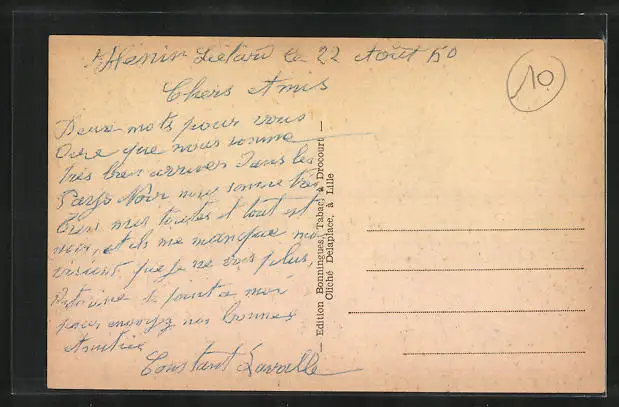 Hénin Liétard le 22 Août 50
Chers Amis
Deux mots pour vous
Dire que nous somme
très bien arriver Dans le
Pays Noir nous somme très
Bien mes toutes et tout est
noir, et ils me manque
visient que je ne vois plus,
et joint a moi
pour envoyez nos bonnes
Amitiée
Constant Lavalle
10
— Edition Bonningues, Tabac, à Drocourt —
Cliché Delaplace, à Lille